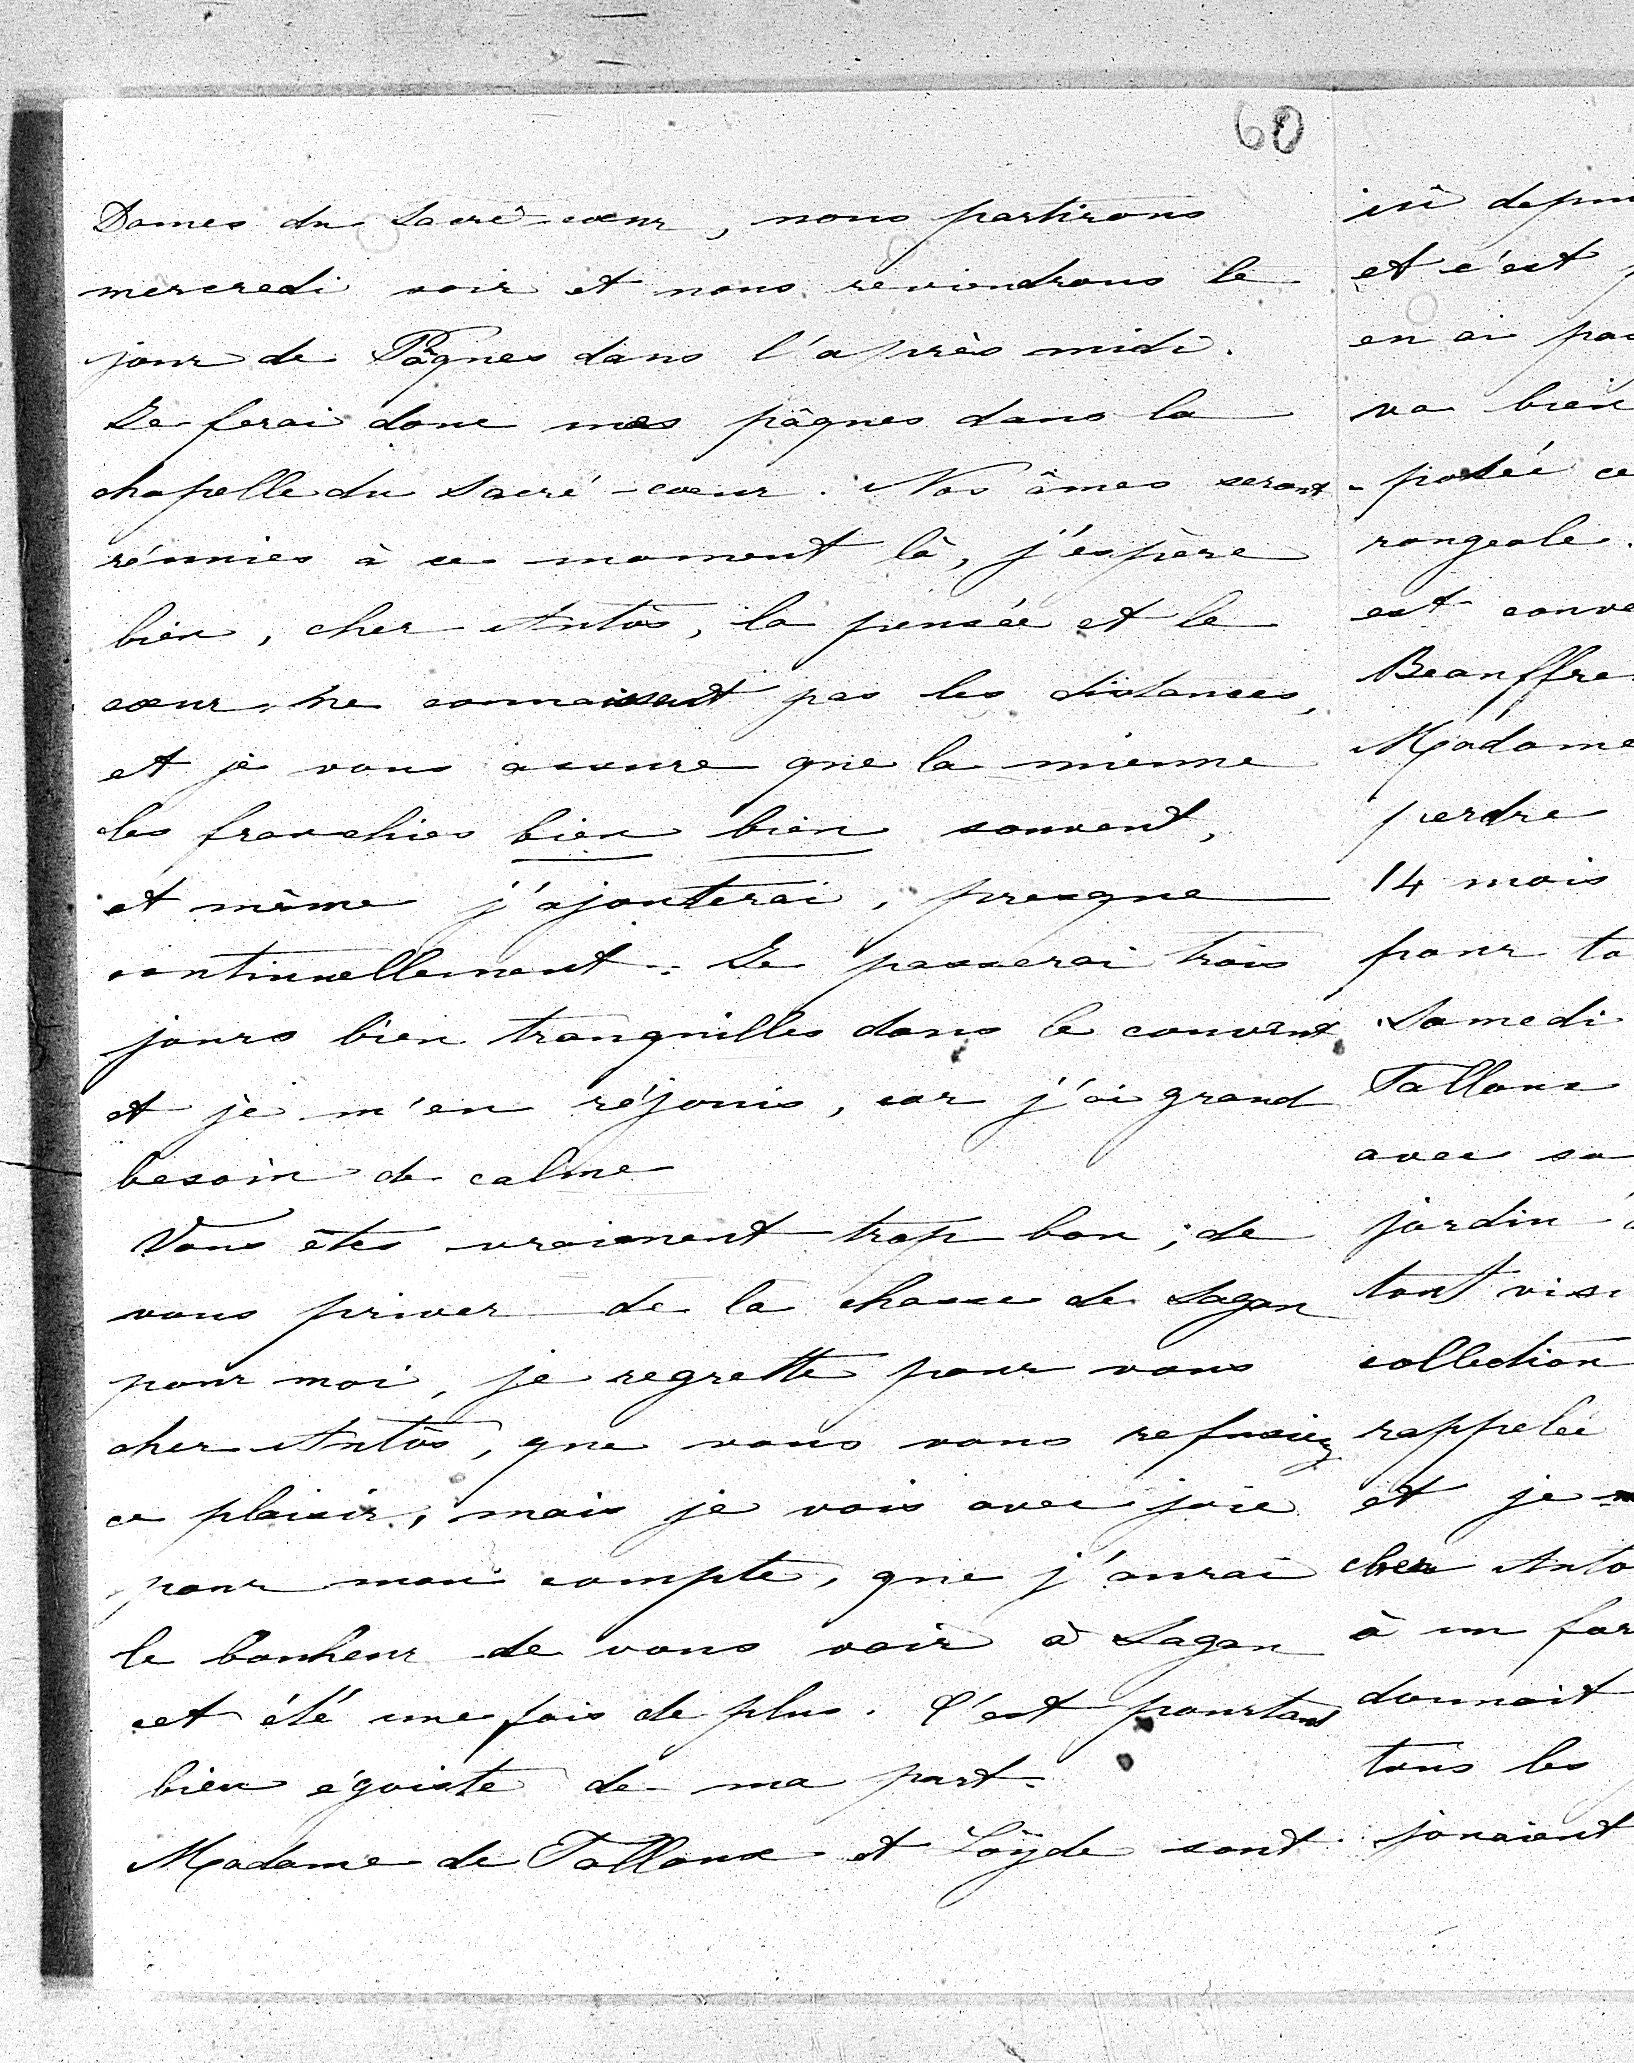 60
Dames du Sacré-coeur, nous partirons
mercredi soir et nous reviendrons le
jour de Pâques dans l'après midi.
Je ferai donc mes pâques dans la
chapelle du Sacré-coeur. Nos âmes seront
réunies à ce moment là, j'espère
bien, cher Antós, la pensée et le
coeur ne connaissent pas les distances,
et je vous assure que la mienne
les franchies bien bien souvent,
et même j'ajouterai, presque
continuellement. Je passerai trois
jours bien tranquilles dans le couvent
et je m'en réjouis, car j'ai grand
besoin de calme
Vous êtes vraiment trop bon, de
vous priver de la chasse de Sagan
pour moi, je regrette pour vous
cher Antós, que vous vous refusiez
ce plaisir, mais je vois avec joie
pour mon compte, que j'aurai
le bonheur de vous voir à Sagan
cet été une fois de plus. C'est pourtant
bien égoïste de ma part.
Madame de Falloux et Loyde sont
ici depui
et c'est
en ai pas
va bien
-posée ce
rougeole.
est conve
Beauffre
Madame
perdre
14 mois
pour to
Samedi
Falloux
avec sa
jardin
tout visi
collection
rappelée
et je
cher Anto
à un
donnait
tous les
jouaient